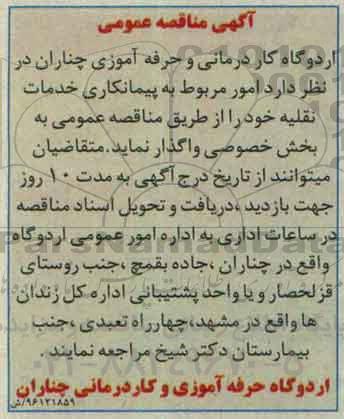 آگهی مناقصه عمومی
اردوگاه کار درمانی و حرفه آموزی چناران در
نظر دارد امور مربوط به پیمانکاری خدمات
نقلیه خود را از طریق مناقصه عمومی به
بخش خصوصی واگذار نماید.متقاضیان
میتوانند از تاریخ درج آگهی به مدت ۱۰ روز
جهت بازدید ،دریافت و تحویل اسناد مناقصه
در ساعات اداری به اداره امور عمومی اردوگاه
واقع در چناران ،جاده بقمچ ،جنب روستای
قزلحصار و یا واحد پشتیبانی اداره کل زندان
ها واقع در مشهد،چهارراه تعبدی ،جنب
بیمارستان دکتر شیخ مراجعه نمایند .
اردوگاه حرفه آموزی و کاردرمانی چناران
۹۶۱۲۱۸۵۹/ش